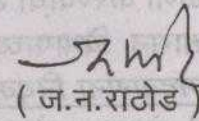 ( ज.न.राठोड )